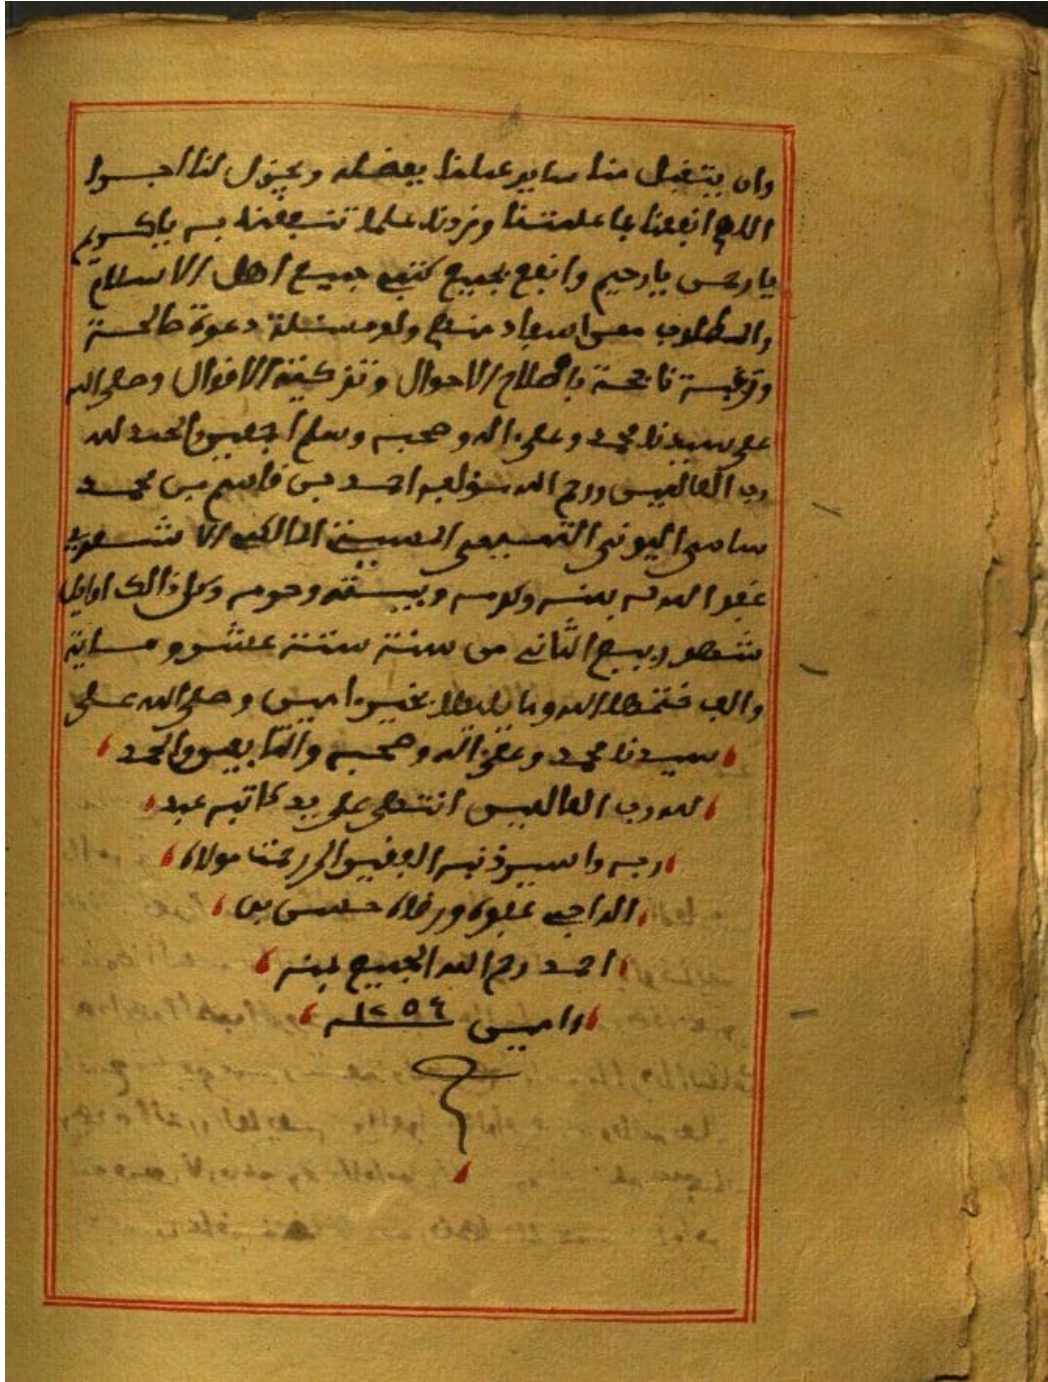 وان يتقبل منا ساير عملنا بفضله ويجزل لنا اجرا
اللهم انفعنا بما علمتنا وزدنا علما تنفعنا به ياكريم
يارحمن يارحيم وانفع بجميع كتبي جميع اهل الاسلام
والمطلوب ممن استفاد منهم ولو مسئلة دعوة صالحة
ورغبة ناجحة باصلاح الاحوال وتزكية الاقوال وصلى الله
على سيدنا محمد وعلى اله وصحبه وسلم اجمعين والحمد لله
رب العالمين ورحم الله مؤلفه احمد بن قاسم بن محمد
ساسي البوني التميمي السني المالكي الاشعري
غفر الله له بمنه وكرمه وبيته وحرمه وكل ذالك اوايل
شهر ربيع الثاني من سنة ستة عشر وماية
والف ختمها الله وما بخير امين وصلى الله على
سيدنا محمد وعلى اله وصحبه والتابعين والحمد
لله رب العالمين انتهى على يد كاتبه عبد
ربه واسير ذنبه الفقير الى رحمت مولاه
الراجي عفوه ورضاه حسن بن
احمد رحم الله الجميع بمنه
وامين ١٢٥٤